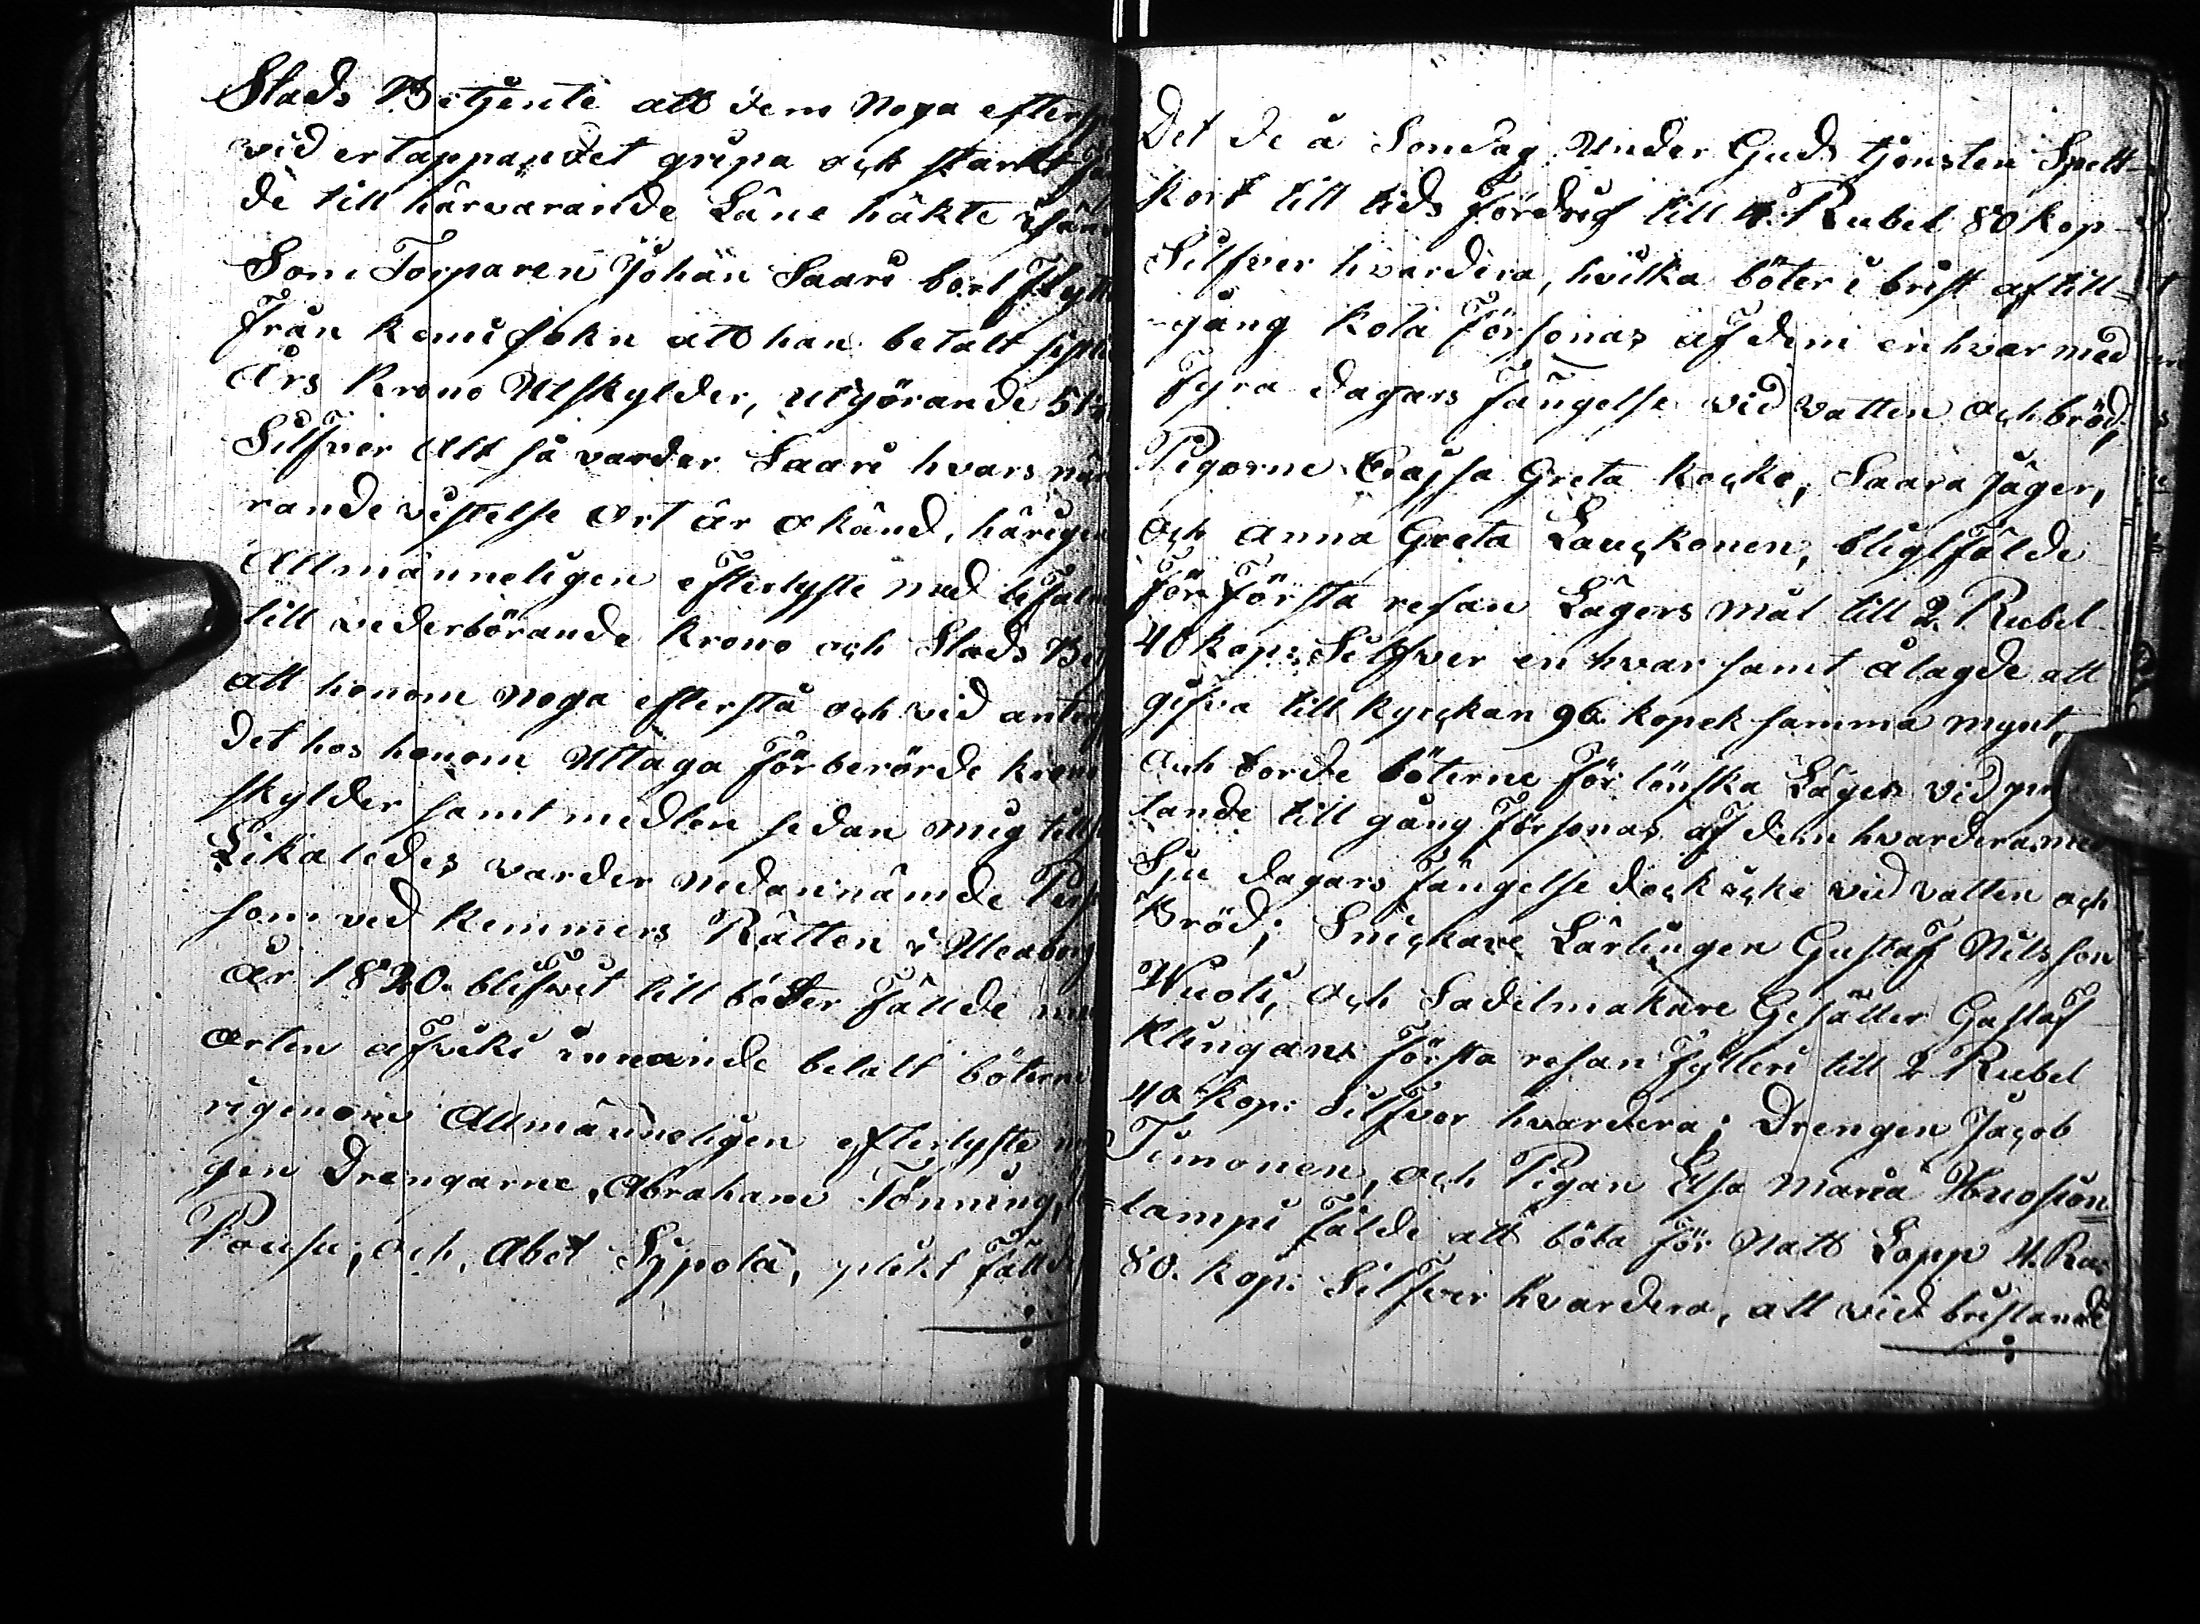 Stads Betjente att dem noga efter
vid ertappandet gripa och starkt
de till härvarande Läns häkte
Som Torparen Johan Saari bort flytt
Från Kemi sokn att han betalt
Års Krono Utskylder, utgörande 51
Silfver Alt så varder Saari hvars nu
rande vistelse Ort är okänd, härigen
Allmänneligen efterlyste med befaln
till vederbörande Krono och Stads Be
att honom noga efterslå och vid anträf
det hos honom Uttaga Förberörde Krono
skylder samt medlen sedan mig
Likaledes varder nedannämde
som ved Kemners Rätten i Uleåborg
år 1820. blifvit till böter Fällde
orten afvikit innan de betalt böterne
rigenom Allmänneligen efterlyste
gen Drengarne Abraham Tönning,
Pousu, och, Abel Sypola, plikt fälld
Det de å Sondag Under Guds tjensten Spelt
Kort till tids Fördrif till 4. Rubel 80 kop
Silfver hvardera, hvilka böter i brist af till=
gång Kola Försonas af dem en hvar med
Fyra dagars Fängelse vid vatten och bröd,
Pigorne Cajsa Greta Kocko, Saara Jäger,
och Anna Greta Lauckonen, pligtfälde
För Första resan Lägers mål till 2. Rubel
40 kop: Silfver en hvar samt ålagde att
gifva till kyrckan 96. kopek samma mynt,
och borde böterne För lönska Läger vid
tande till gång Försonas af dem hvardera med
Sju dagars Fängelse dock icke vid vatten och
Bröd; Snickare Lärlingen Gustaf Nilsson
Wuoti, och Sadelmakare Gesäller Gustaf
Klingan Första resan Fylleri till 2 Rubel
40. Kop: Silfver hvardera; Drengen Jacob
Timonen, och Pigan Elsa Maria Huosion
=lampi Fälde att böta För Natt Lopp 4. Ru:
80. kop: Silfver hvardera, att vid bristande